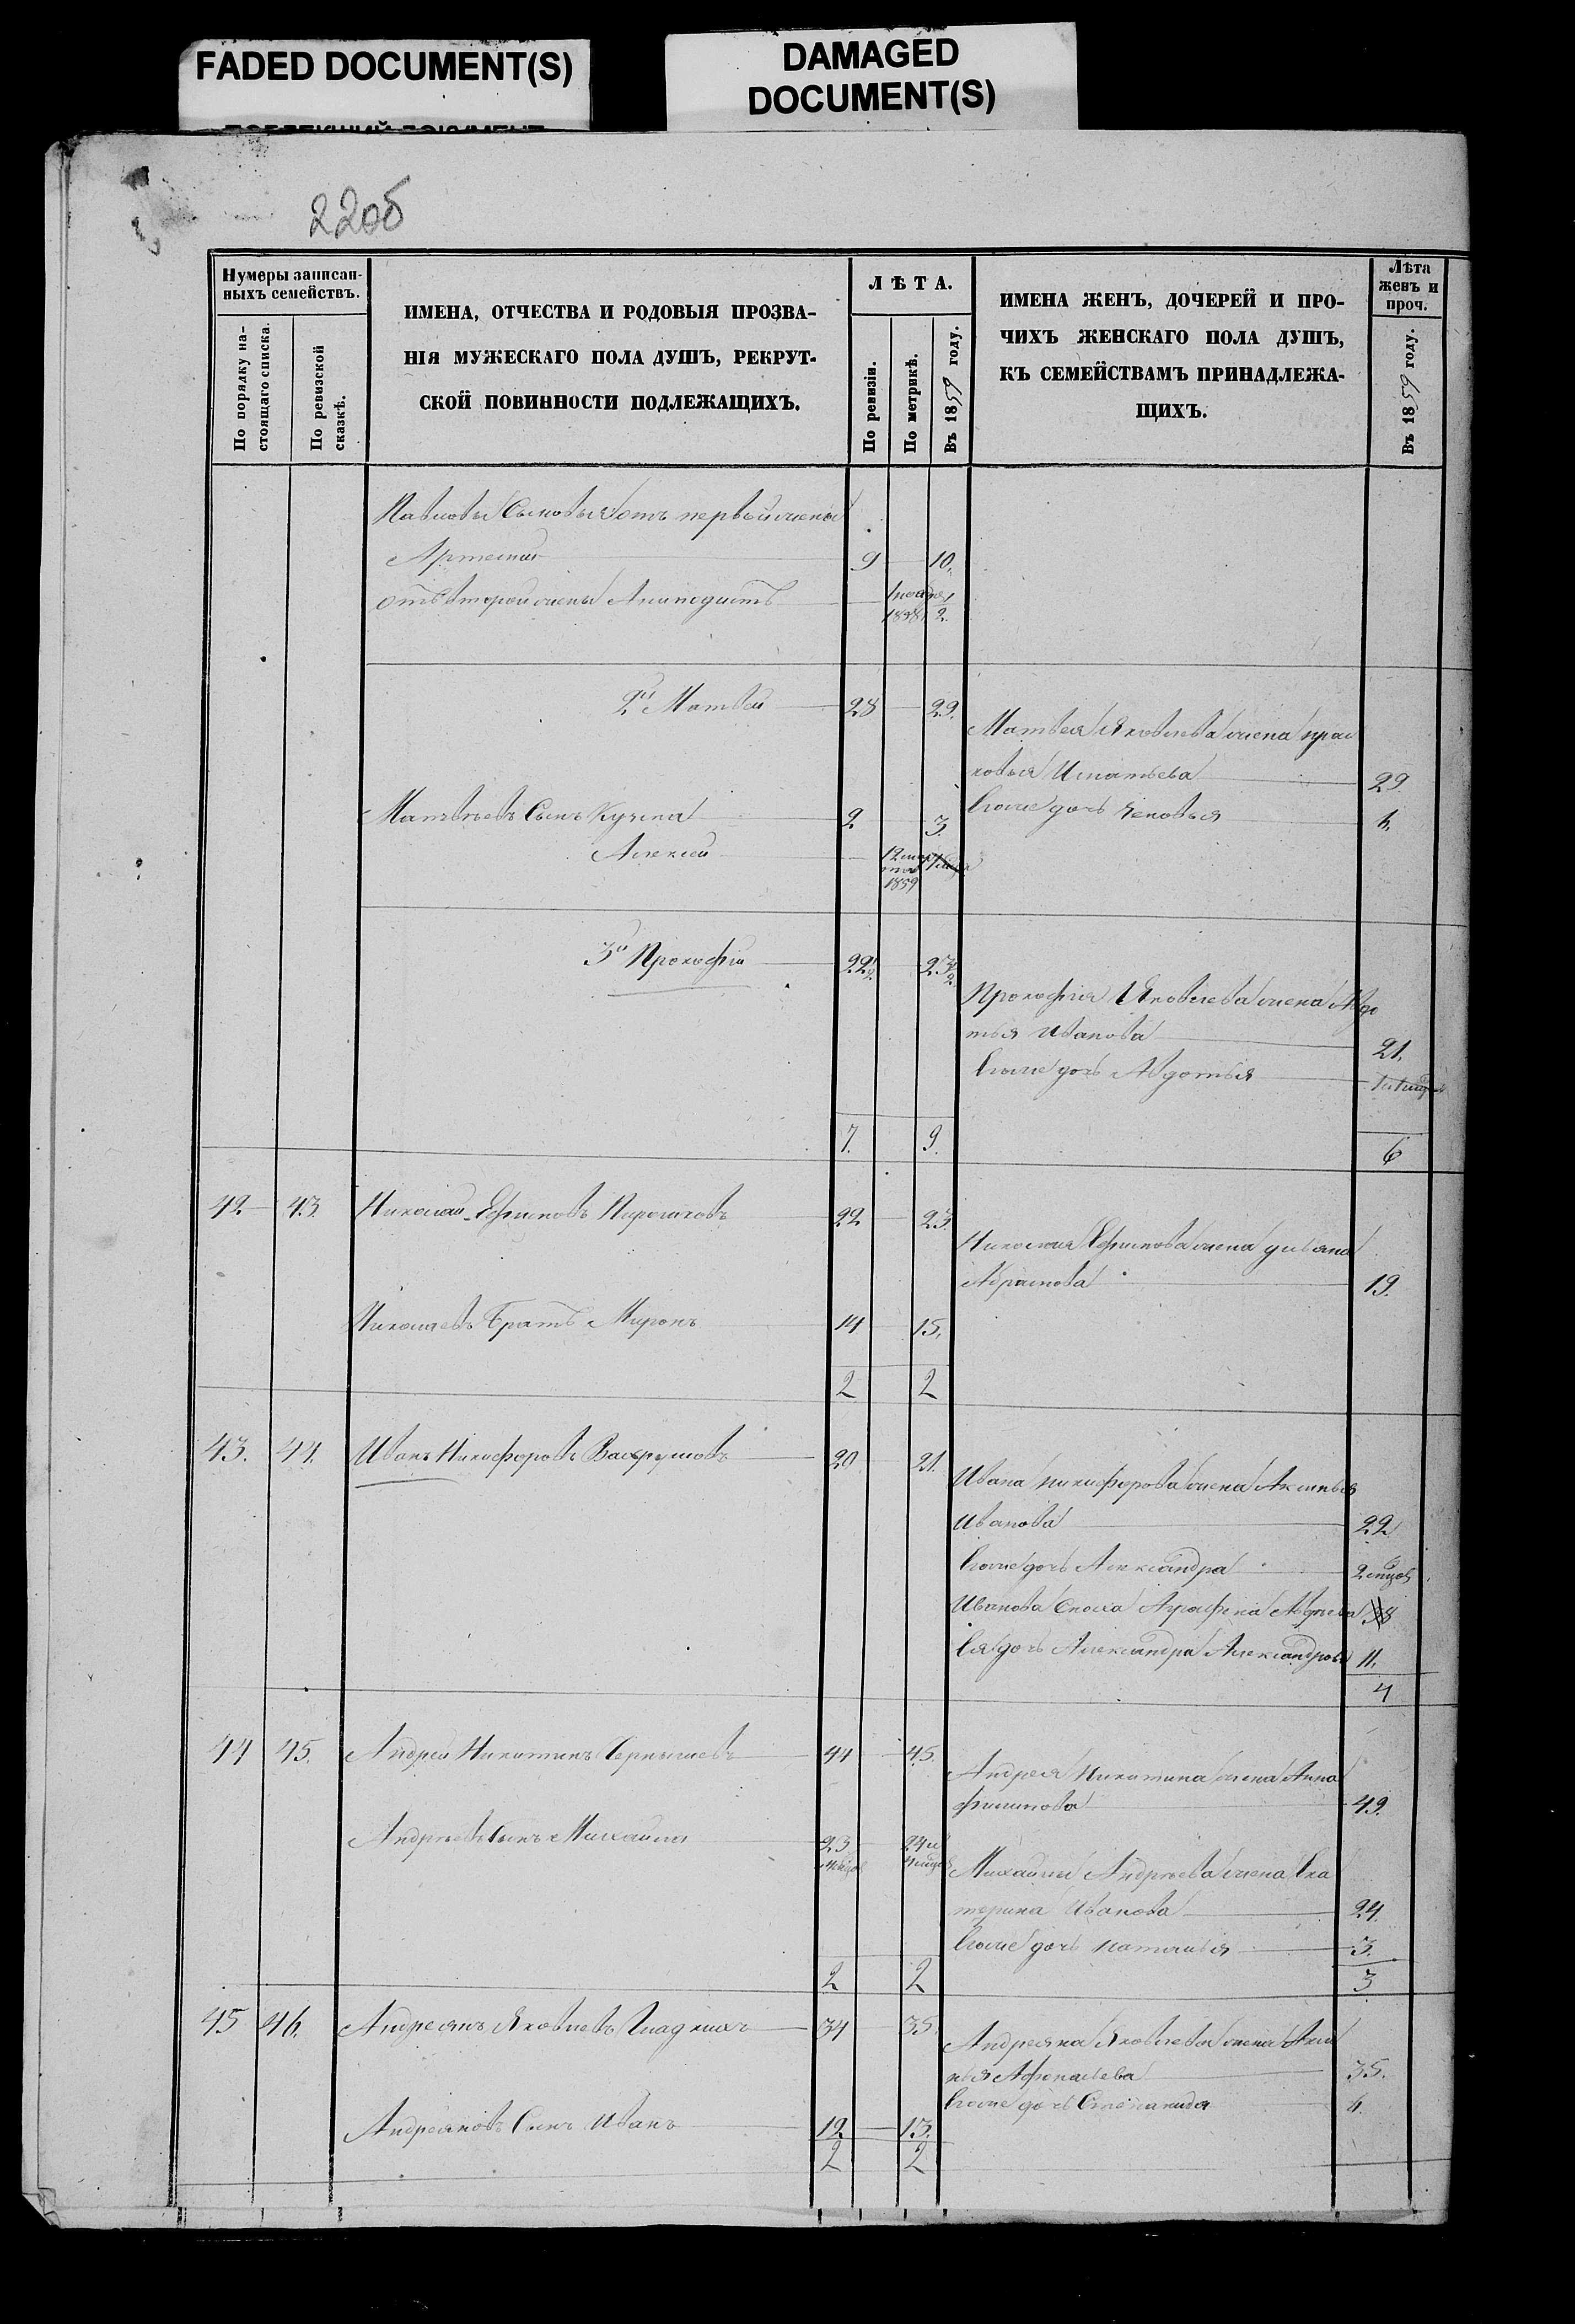 FADED DOCUMENT(S)
DAMAGED
DOCUMENT(S)
22об
Нумеры записан-
ныхъ семействъ.
По порядку на-
стоящаго списка.
По ревизской
сказкѣ.
ИМЕНА, ОТЧЕСТВА И РОДОВЫЯ ПРОЗВА-
НІЯ МУЖЕСКАГО ПОЛА ДУШЪ, РЕКРУТ-
СКОЙ ПОВИННОСТИ ПОДЛЕЖАЩИХЪ.
ЛѢТА.
По ревизіи.
По метрикѣ.
Въ 1859 году.
ИМЕНА ЖЕНЪ, ДОЧЕРЕЙ И ПРО-
ЧИХЪ ЖЕНСКАГО ПОЛА ДУШЪ,
КЪ СЕМЕЙСТВАМЪ ПРИНАДЛЕЖА-
ЩИХЪ.
Лѣта
женъ и
проч.
Въ 1859 году.
Павловы Сыновья отъ первой жены
Артемий 9 10.
отъ второй жены 1858 2.
2й Матвей 28 29.
Матвея Яковлева жена Прас
ковья Игнатьева 29.
Матвѣевъ Сынъ Кузма 2 3.
Ихъ дочь
Алексей 12 мар
та
1859
3й Прокофий 22½ 23½
Прокофия Яковлева жена Авдо
тья Иванова 21.
дочь Авдотья
7. 9. 6
42 43. Николай Ефимовъ 22 23.
Николая Ефимова жена Ульяна
Абрамова 19.
Николаевъ Братъ Миронъ 14 15.
2 2
43. 44. Иванъ Никифоровъ Вахрушовъ 20 21.
Ивана Никифорова жена Аксинья
Иванова 22
дочь Александра 2 мцов
Иванова Сноха Аграфена
Ея дочь Александра Александрова 11.
4
44 45. Андрей Никитинъ Чернышевъ 44 45.
Андрея Никитина жена Анна
Филипова 49.
Андреевъ Сынъ Михайла 23 24 и
Михайлы Андреева жена Ека
терина Иванова 24.
дочь Наталья 3.
2 2 3
45 46. Андреянъ Яковлевъ Гладкихъ 34 35.
Андреяна Яковлева жена
Афонасьева 35.
дочь Степанида
Андреяновъ Сынъ Иванъ 12 13.
2 2